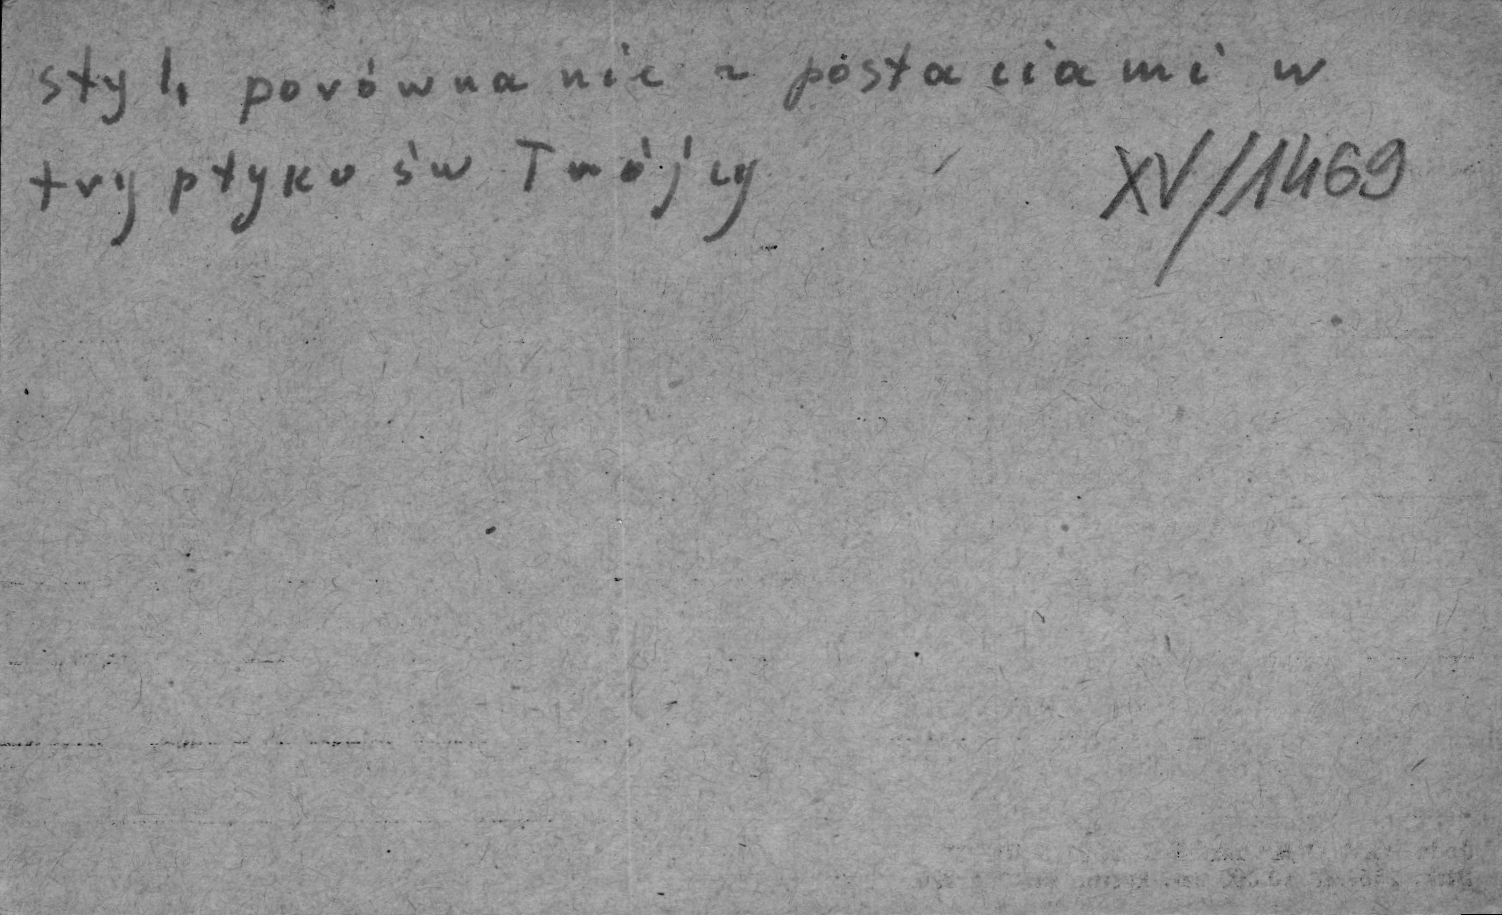 styl, porównanie z postaciami w
tryptyku św Trójcy
XV/1469